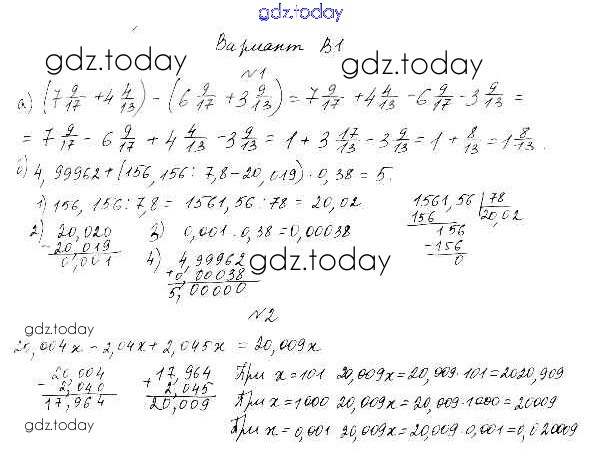 gdz.today
Вариант В1
gdz.today gdz.today
№1
а) (7 9/17 + 4 4/13) - (6 9/17 + 3 9/13) = 7 9/17 + 4 4/13 - 6 9/17 - 3 9/13 =
= 7 9/17 - 6 9/17 + 4 4/13 - 3 9/13 = 1 + 3 17/13 - 3 9/13 = 1 + 8/13 = 1 8/13.
б) 4,99962 + (156,156 : 7,8 - 20,019) · 0,38 = 5.
1) 156,156 : 7,8 = 1561,56 : 78 = 20,02
1561,56 | 78
156 20,02
156
-156
0
2) 20,020
- 20,019
0,001
3) 0,001 · 0,38 = 0,00038
4) 4,99962
+ 0,00038
5,00000
gdz.today
№2
gdz.today
20,004x - 2,04x + 2,045x = 20,009x
20,004
- 2,040
17,964
17,964
+ 2,045
20,009
При x = 101 20,009x = 20,009 · 101 = 2020,909
При x = 1000 20,009x = 20,009 · 1000 = 20009
При x = 0,001 20,009x = 20,009 · 0,001 = 0,020009
gdz.today